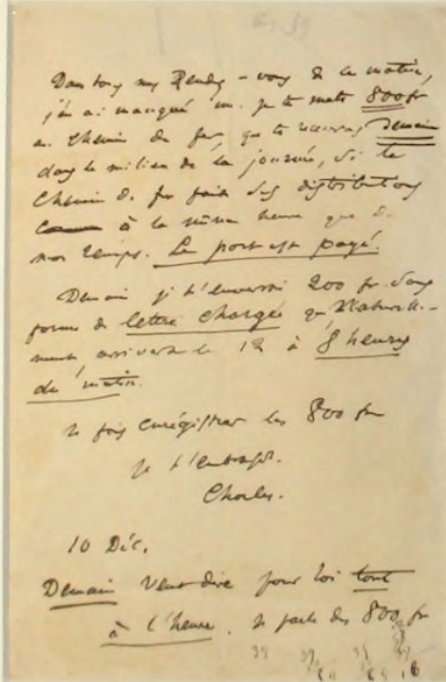 Dans tous mes Rendez-vous de ce matin,
j'en ai manqué un. Je te mets 800 fr
au chemin de fer que tu recevras Demain
dans le milieu de la journée, si le
Chemin de fer fait ses distributions
à la même heure que de
nos temps. Le port est payé.
Demain je t'enverrai 200 fr sous
forme de lettre chargée qui naturelle-
ment arrivera le 12 à 8 heures
du matin.
Je fais enrégistrer les 800 fr
Je t'embrasse.
Charles.
10 Déc.
Demain veut dire pour toi tout
à l'heure. Je parle des 800 fr
39 39 39 39
16